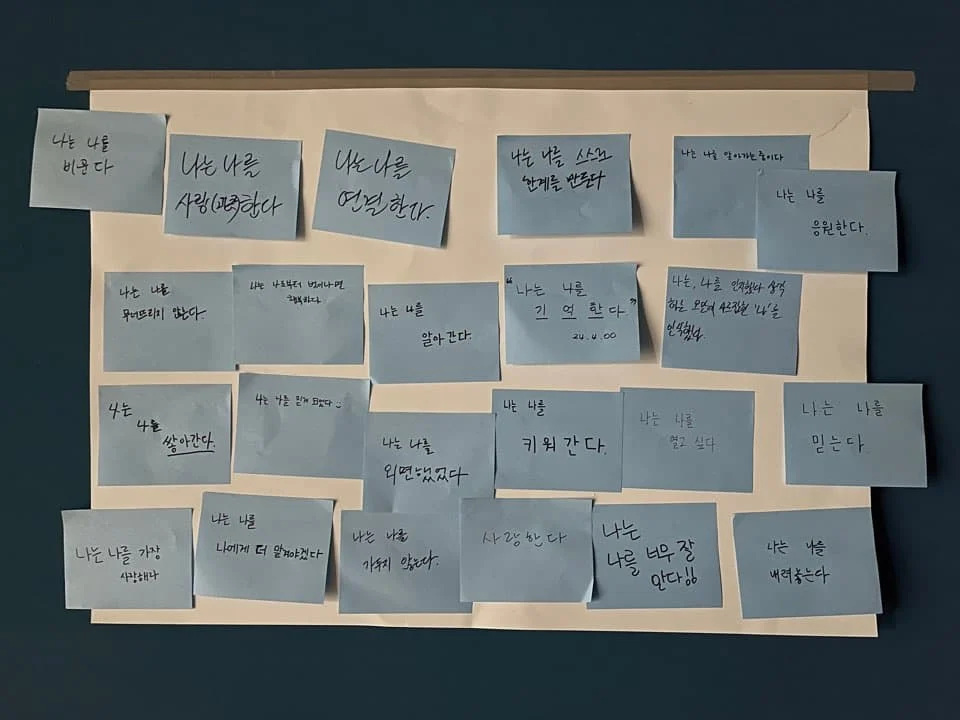 나는 나를
비운다
나는 나를
사랑( )한다
나는 나를
연결한다.
나는 나를 스스로
한계를 만든다
나는 나를 알아가는중이다
나는 나를
응원한다.
나는 나를
무너뜨리지 않는다.
나는 나로부터 벗어나면
행복하다.
나는 나를
알아간다.
“나는 나를
기억한다”
24.4.00
나는, 나를 인지했다 생각
하는 오만에 사로잡힌 '나'를
인식했다.
나는
나를
쌓아간다.
나는 나를 믿게 되었다 :)
나는 나를
외면했었다
나는 나를
키워간다.
나는 나를
열고 싶다
나는 나를
믿는다.
나는 나를 가장
사랑해나
나는 나를
나에게 더 맡겨야겠다
나는 나를
가두지 않는다.
사랑한다
나는
나를 너무 잘
안다!!
나는 나를
내려놓는다